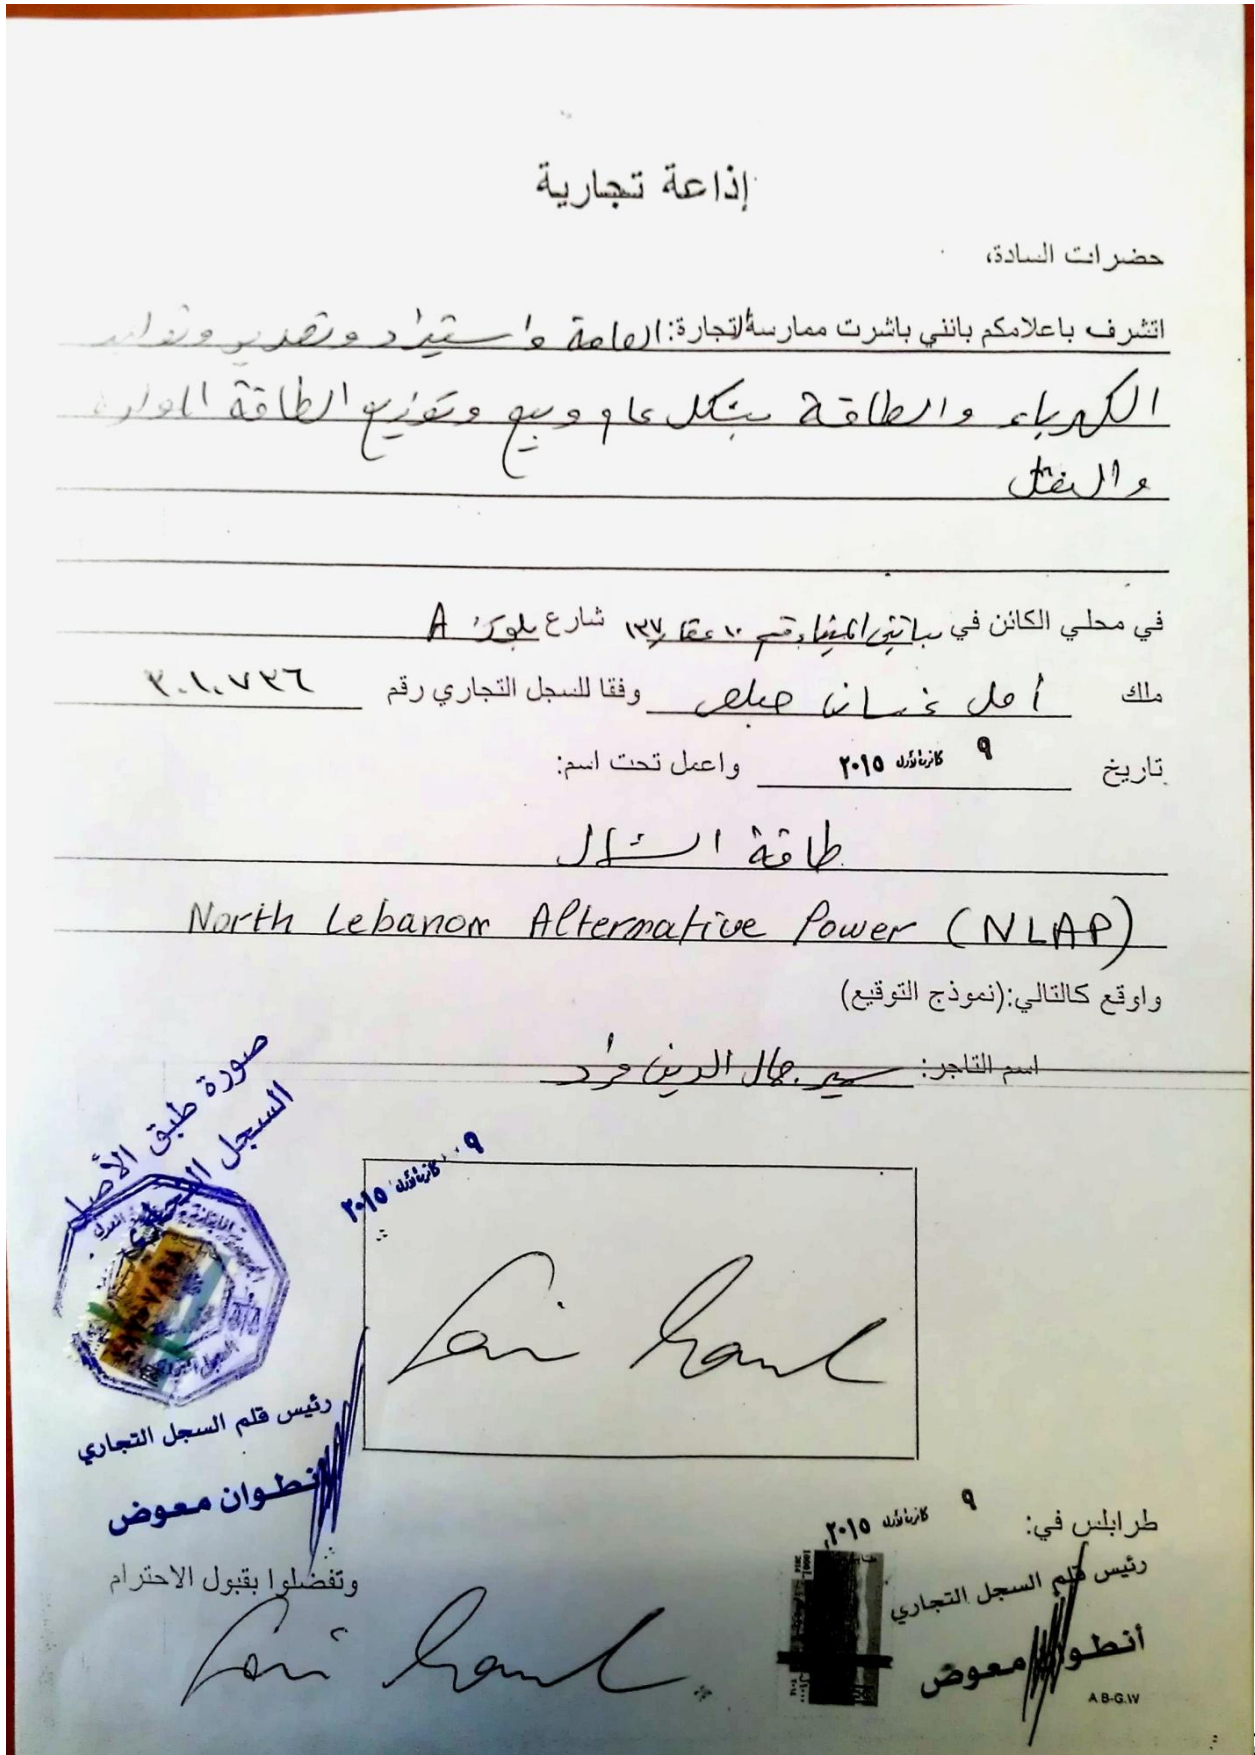 إذاعة تجارية
حضرات السادة،
اتشرف باعلامكم بانني باشرت ممارسة التجارة: العامة واستيراد وتصدير وتوليد
الكهرباء والطاقة بشكل عام وبيع وتوزيع الطاقة المولدة
والنقل
في محلي الكائن في بساتين الميناء قسم ١٠ عقار ١٣٧ شارع بلوك A
ملك أمل غسان وفقا للسجل التجاري رقم ٣٠١٠٧٣٦
تاريخ ٩ كانون الأول ٢٠١٥ واعمل تحت اسم:
طاقة الشمال
North Lebanon Alternative Power (NLAP)
واوقع كالتالي:(نموذج التوقيع)
اسم التاجر: سمير جمال الدين مراد
صورة طبق الأصل
السجل التجاري
٩ كانون الأول ٢٠١٥
رئيس قلم السجل التجاري
أنطوان معوض
طرابلس في: ٩ كانون الأول ٢٠١٥
رئيس قلم السجل التجاري
أنطوان معوض
A B-G.W
وتفضلوا بقبول الاحترام